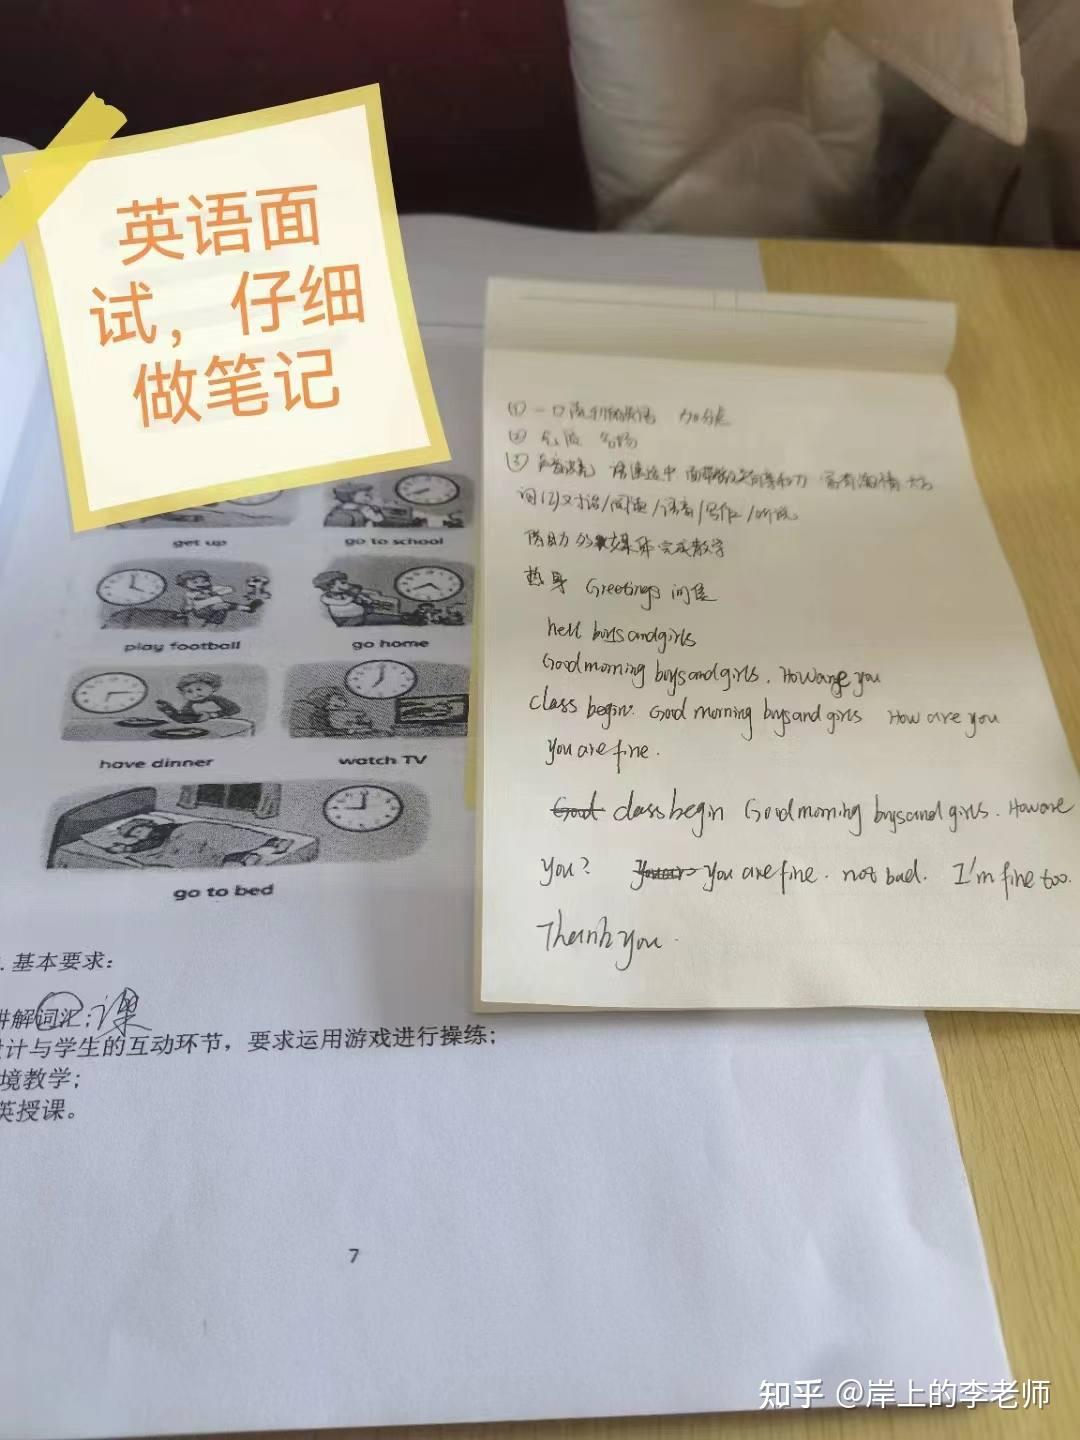 英语面
试，仔细
做笔记
get up
go to school
play football
go home
have dinner
watch TV
go to bed
. 基本要求：
讲解词汇; 课
设计与学生的互动环节，要求运用游戏进行操练;
境教学;
英授课。
7
① 一口流利的英语 加分点
②
③ 声音洪亮 语速适中 面带微笑有亲和力 富有激情 大方
词汇/对话/阅读/语音/写作/听说
借助多媒体完成教学
热身 Greetings 问候
hell boys and girls
Good morning boys and girls. How are you
class begin. Good morning boys and girls How are you
you are fine.
class begin Good morning boys and girls. How are
you? you are fine. not bad. I'm fine too.
Thank you.
知乎 @岸上的李老师